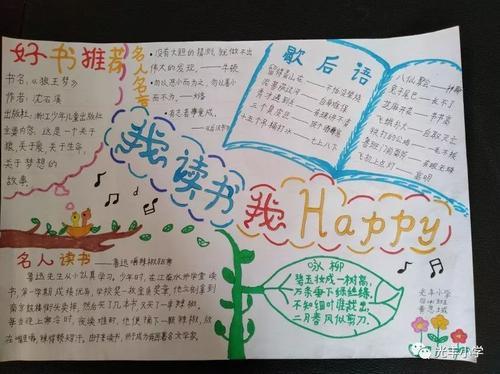 好书推荐
书名：《狼王梦》
作者：沈石溪
出版社：浙江少年儿童出版社
主要内容：这是一个关于
狼，关于爱，关于生命，
关于梦想的
故事。
名人名言
没有大胆的猜测，就做不出
伟大的发现。——牛顿
勿以恶小而为之，勿以善小
而不为。——刘备
歇后语
留得青山在——不怕没柴烧
泥菩萨过河——自身难保
十五个吊桶打水——七上八下
八仙过海——各显神通
兔子尾巴——长不了
芝麻开花——节节高
飞蛾扑火——自取灭亡
铁打的公鸡——一毛不拔
鲁班门前
飞机上点灯——高明
我读书
我Happy
名人读书——鲁迅嚼辣椒驱寒
鲁迅先生从小认真学习。少年时，在江南水师学堂读
书，第一学期成绩优异，学校奖一枚金质奖章。他立刻拿到
南京鼓楼街头卖掉，然后买了几本书，又买了一串辣椒，
每当晚上寒冷时，夜读难耐，他便摘下一颗辣椒，放
在嘴里嚼，辣得额头冒汗。由于爱读书，所以成为我国著名文学家。
咏柳
碧玉妆成一树高，
万条垂下绿丝绦。
不知细叶谁裁出，
二月春风似剪刀。
光丰小学
光丰小学